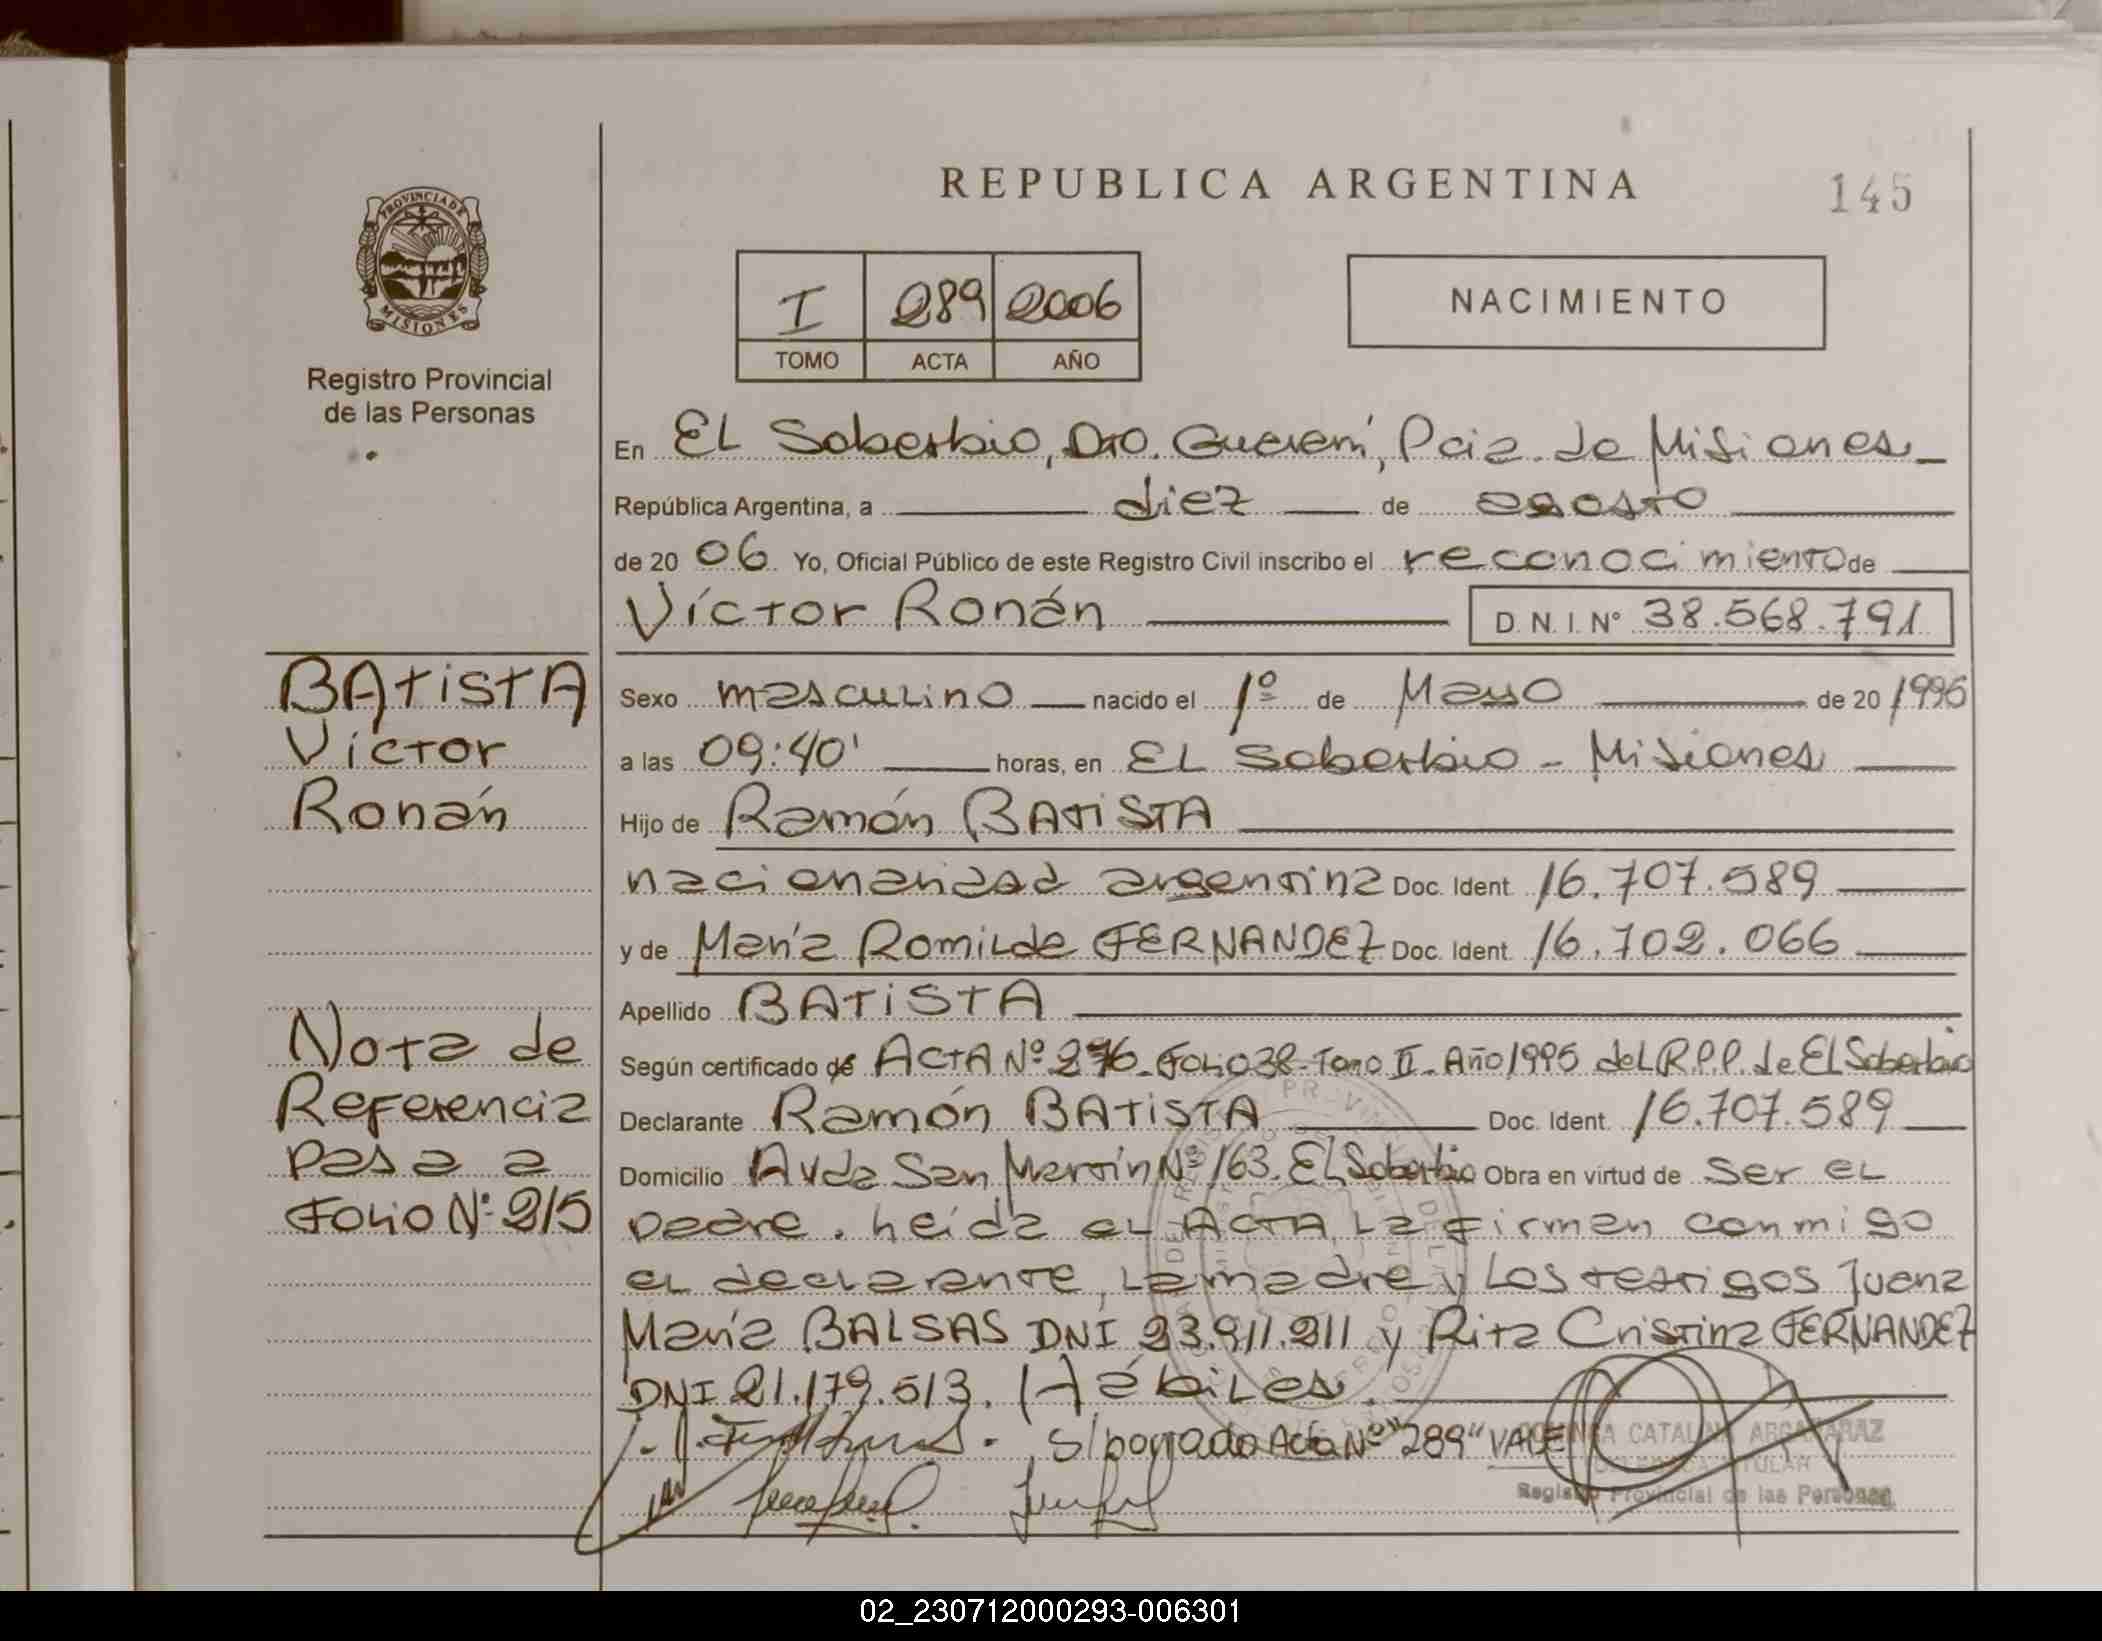 REPUBLICA ARGENTINA
145
PROVINCIA DE
MISIONES
Registro Provincial
de las Personas
I 289 2006
TOMO ACTA AÑO
NACIMIENTO
En EL Soberbio, Dto. Guaraní, Pcia. de Misiones
República Argentina, a diez de agosto
de 20 06 Yo, Oficial Público de este Registro Civil inscribo el reconocimiento de
Víctor Ronán D.N.I. Nº 38.568.791
BATISTA
Víctor
Ronán
Sexo masculino nacido el 1º de Mayo de 20 1995
a las 09:40' horas, en EL Soberbio - Misiones
Hijo de Ramón BATISTA
nacionalidad argentina Doc. Ident. 16.707.589
y de María Romilda FERNANDEZ Doc. Ident. 16.702.066
Apellido BATISTA
Según certificado de ACTA Nº 276 - Folio 38 - Tomo II - Año 1995 del R.P.P. de El Soberbio
Declarante Ramón BATISTA Doc. Ident. 16.707.589
Domicilio Avda San Martín Nº 163. El Soberbio Obra en virtud de ser el
padre. Leída el ACTA, la firman conmigo
el declarante, la madre y los testigos Juana
María BALSAS DNI 23.911.211 y Rita Cristina FERNANDEZ
DNI 21.179.513. Hábiles.
S/borrado Acta Nº "289" VALE
Nota de
Referencia
pasa a
Folio Nº 215
CATALINA
TITULAR
Registro Provincial de las Personas
02_230712000293-006301